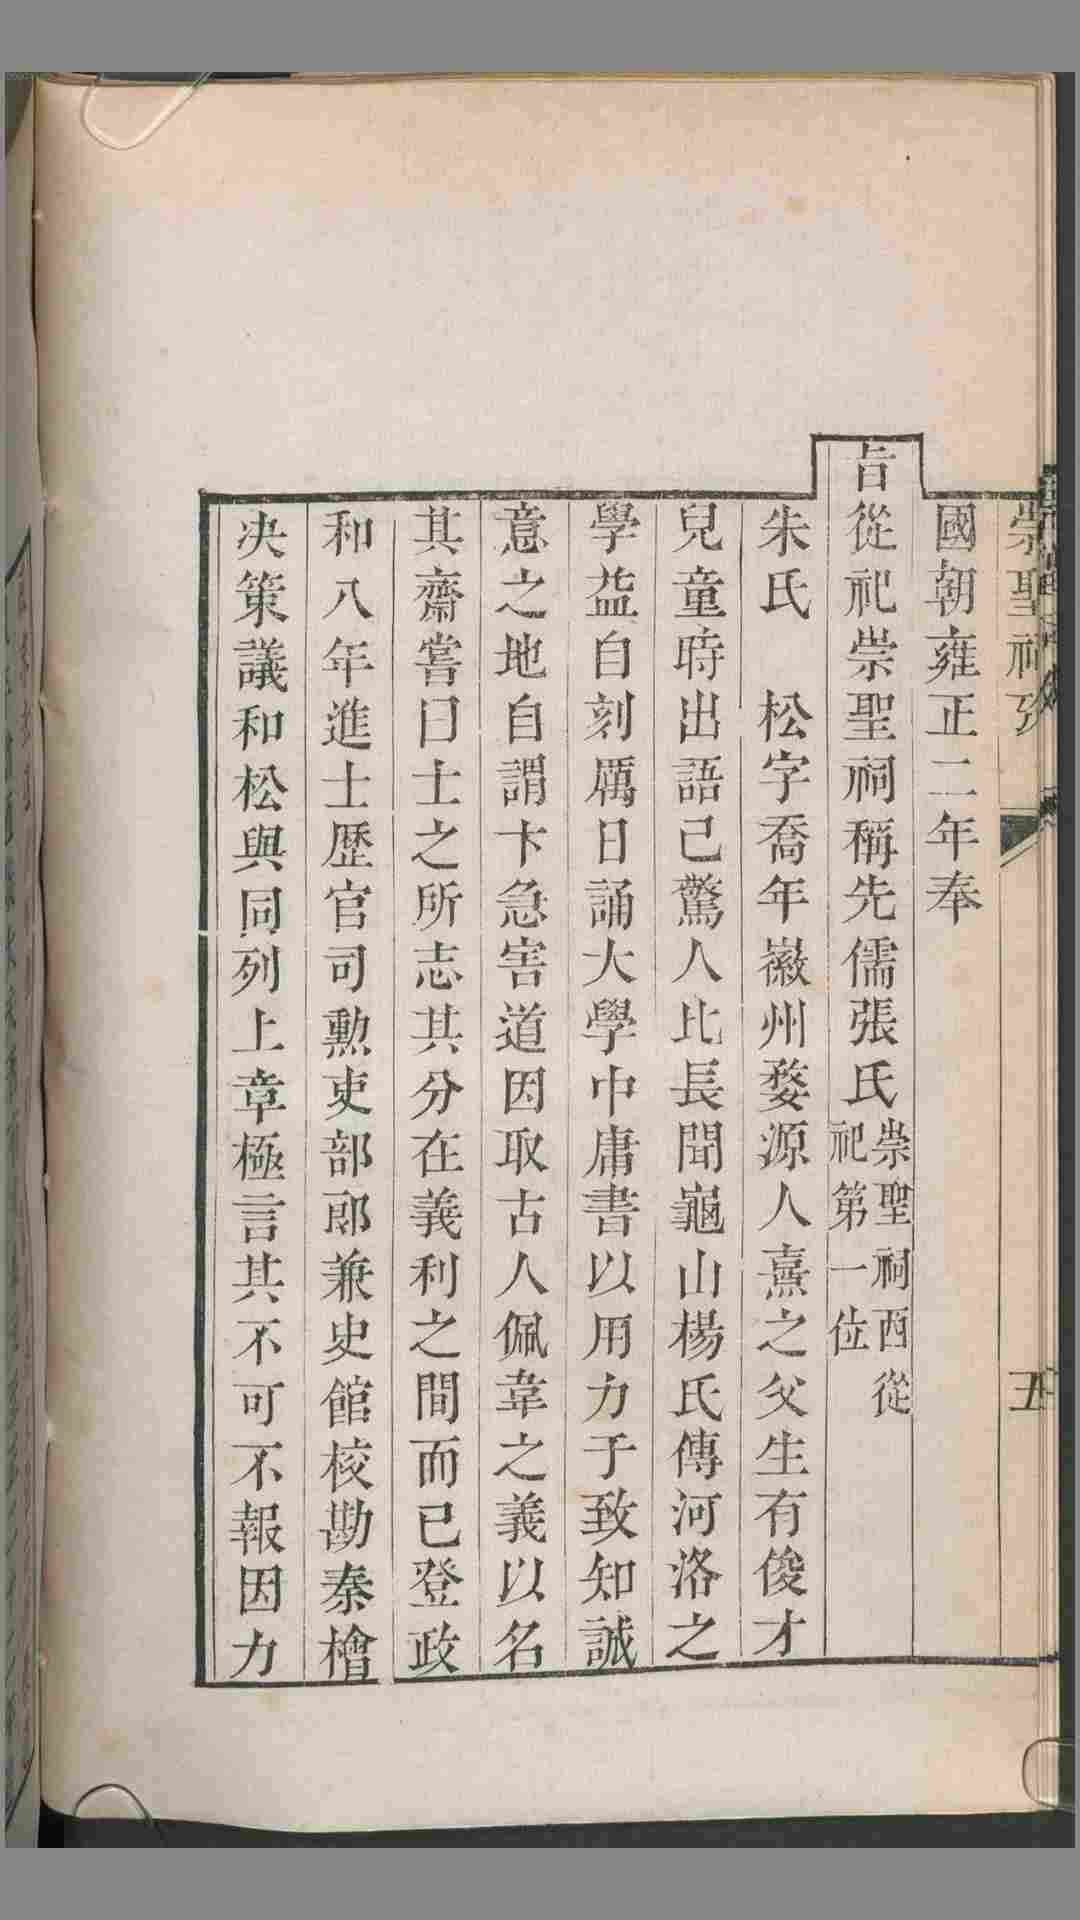 崇聖祠攷
五
國朝雍正二年奉
旨從祀崇聖祠稱先儒張氏
崇聖祠西從
祀第一位
朱氏　松字喬年徽州婺源人熹之父生有俊才
兒童時出語已驚人比長聞龜山楊氏傳河洛之
學益自刻厲日誦大學中庸書以用力于致知誠
意之地自謂卞急害道因取古人佩韋之義以名
其齋嘗曰士之所志其分在義利之間而已登政
和八年進士歷官司勲吏部郎兼史館校勘秦檜
决策議和松與同列上章極言其不可不報因力